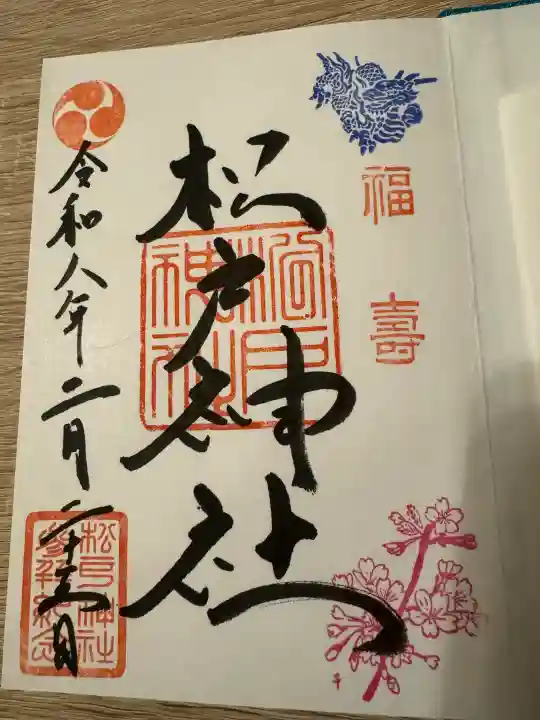 福壽
松戸神社
松戸神社
令和八年二月二十三日
松戸神社
參拝紀念